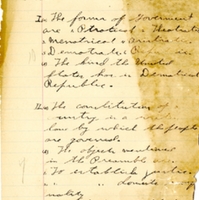 I. The forms of Government
are a Patriarchal Theocratic
Monarchical Aristocratic
Democratic
The kind the United
States has is Democratical
Republic.
II. The constitution of a
country is a
law by which the people
are governed.
The objects mentioned
in the Preamble are.
To establish justice
" " domestic